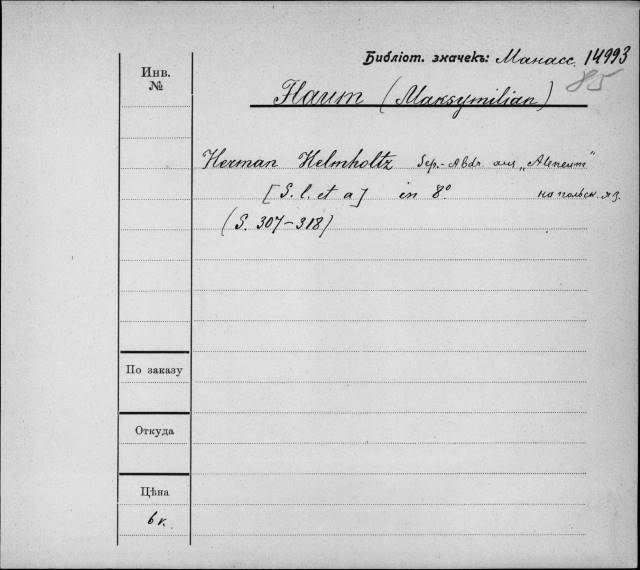 Библіот. значекъ: Манасс. 14993
85
Инв.
№
Flaum (Maksymilian)
Herman Helmholtz Sep.-Abdr. aus „Ateneum“
[S. l. et a] in 8° на польск. яз.
(S. 307-318)
По заказу
Откуда
Цѣна
6 к.